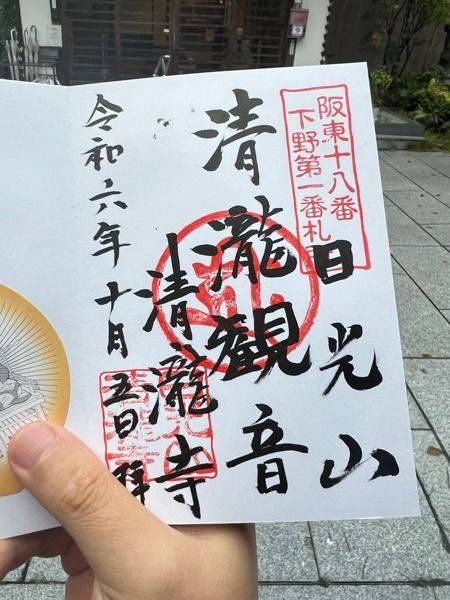 阪東十八番
下野第一番札
日光山
清瀧観音
清瀧寺
令和六年十月五日 拝